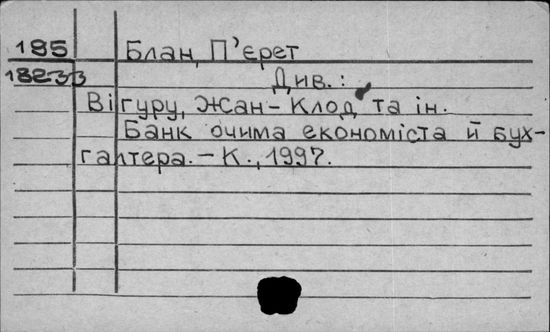 195 Блан, П'єрет
18233 Див.:
Вігуру, Жан-Клод та ін.
Банк очима економіста й бух-
галтера. – К., 1997.